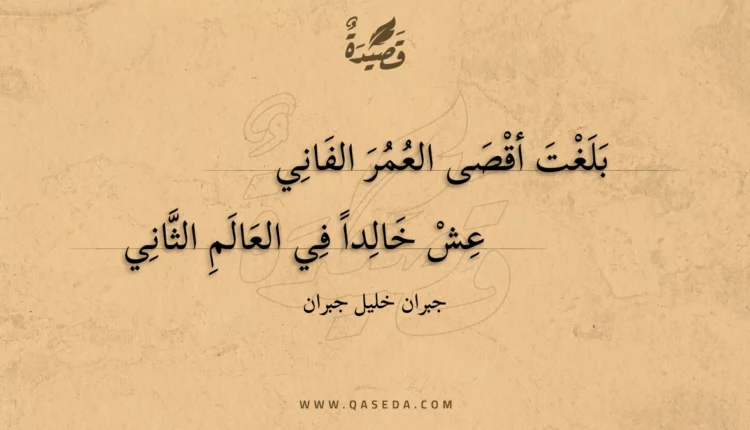 قَصِيْدَةٌ
بَلَغْتَ أقْصَى العُمُرَ الفَانِي
عِشْ خَالِداً فِي العَالَمِ الثَّانِي
جبران خليل جبران
WWW.QASEDA.COM